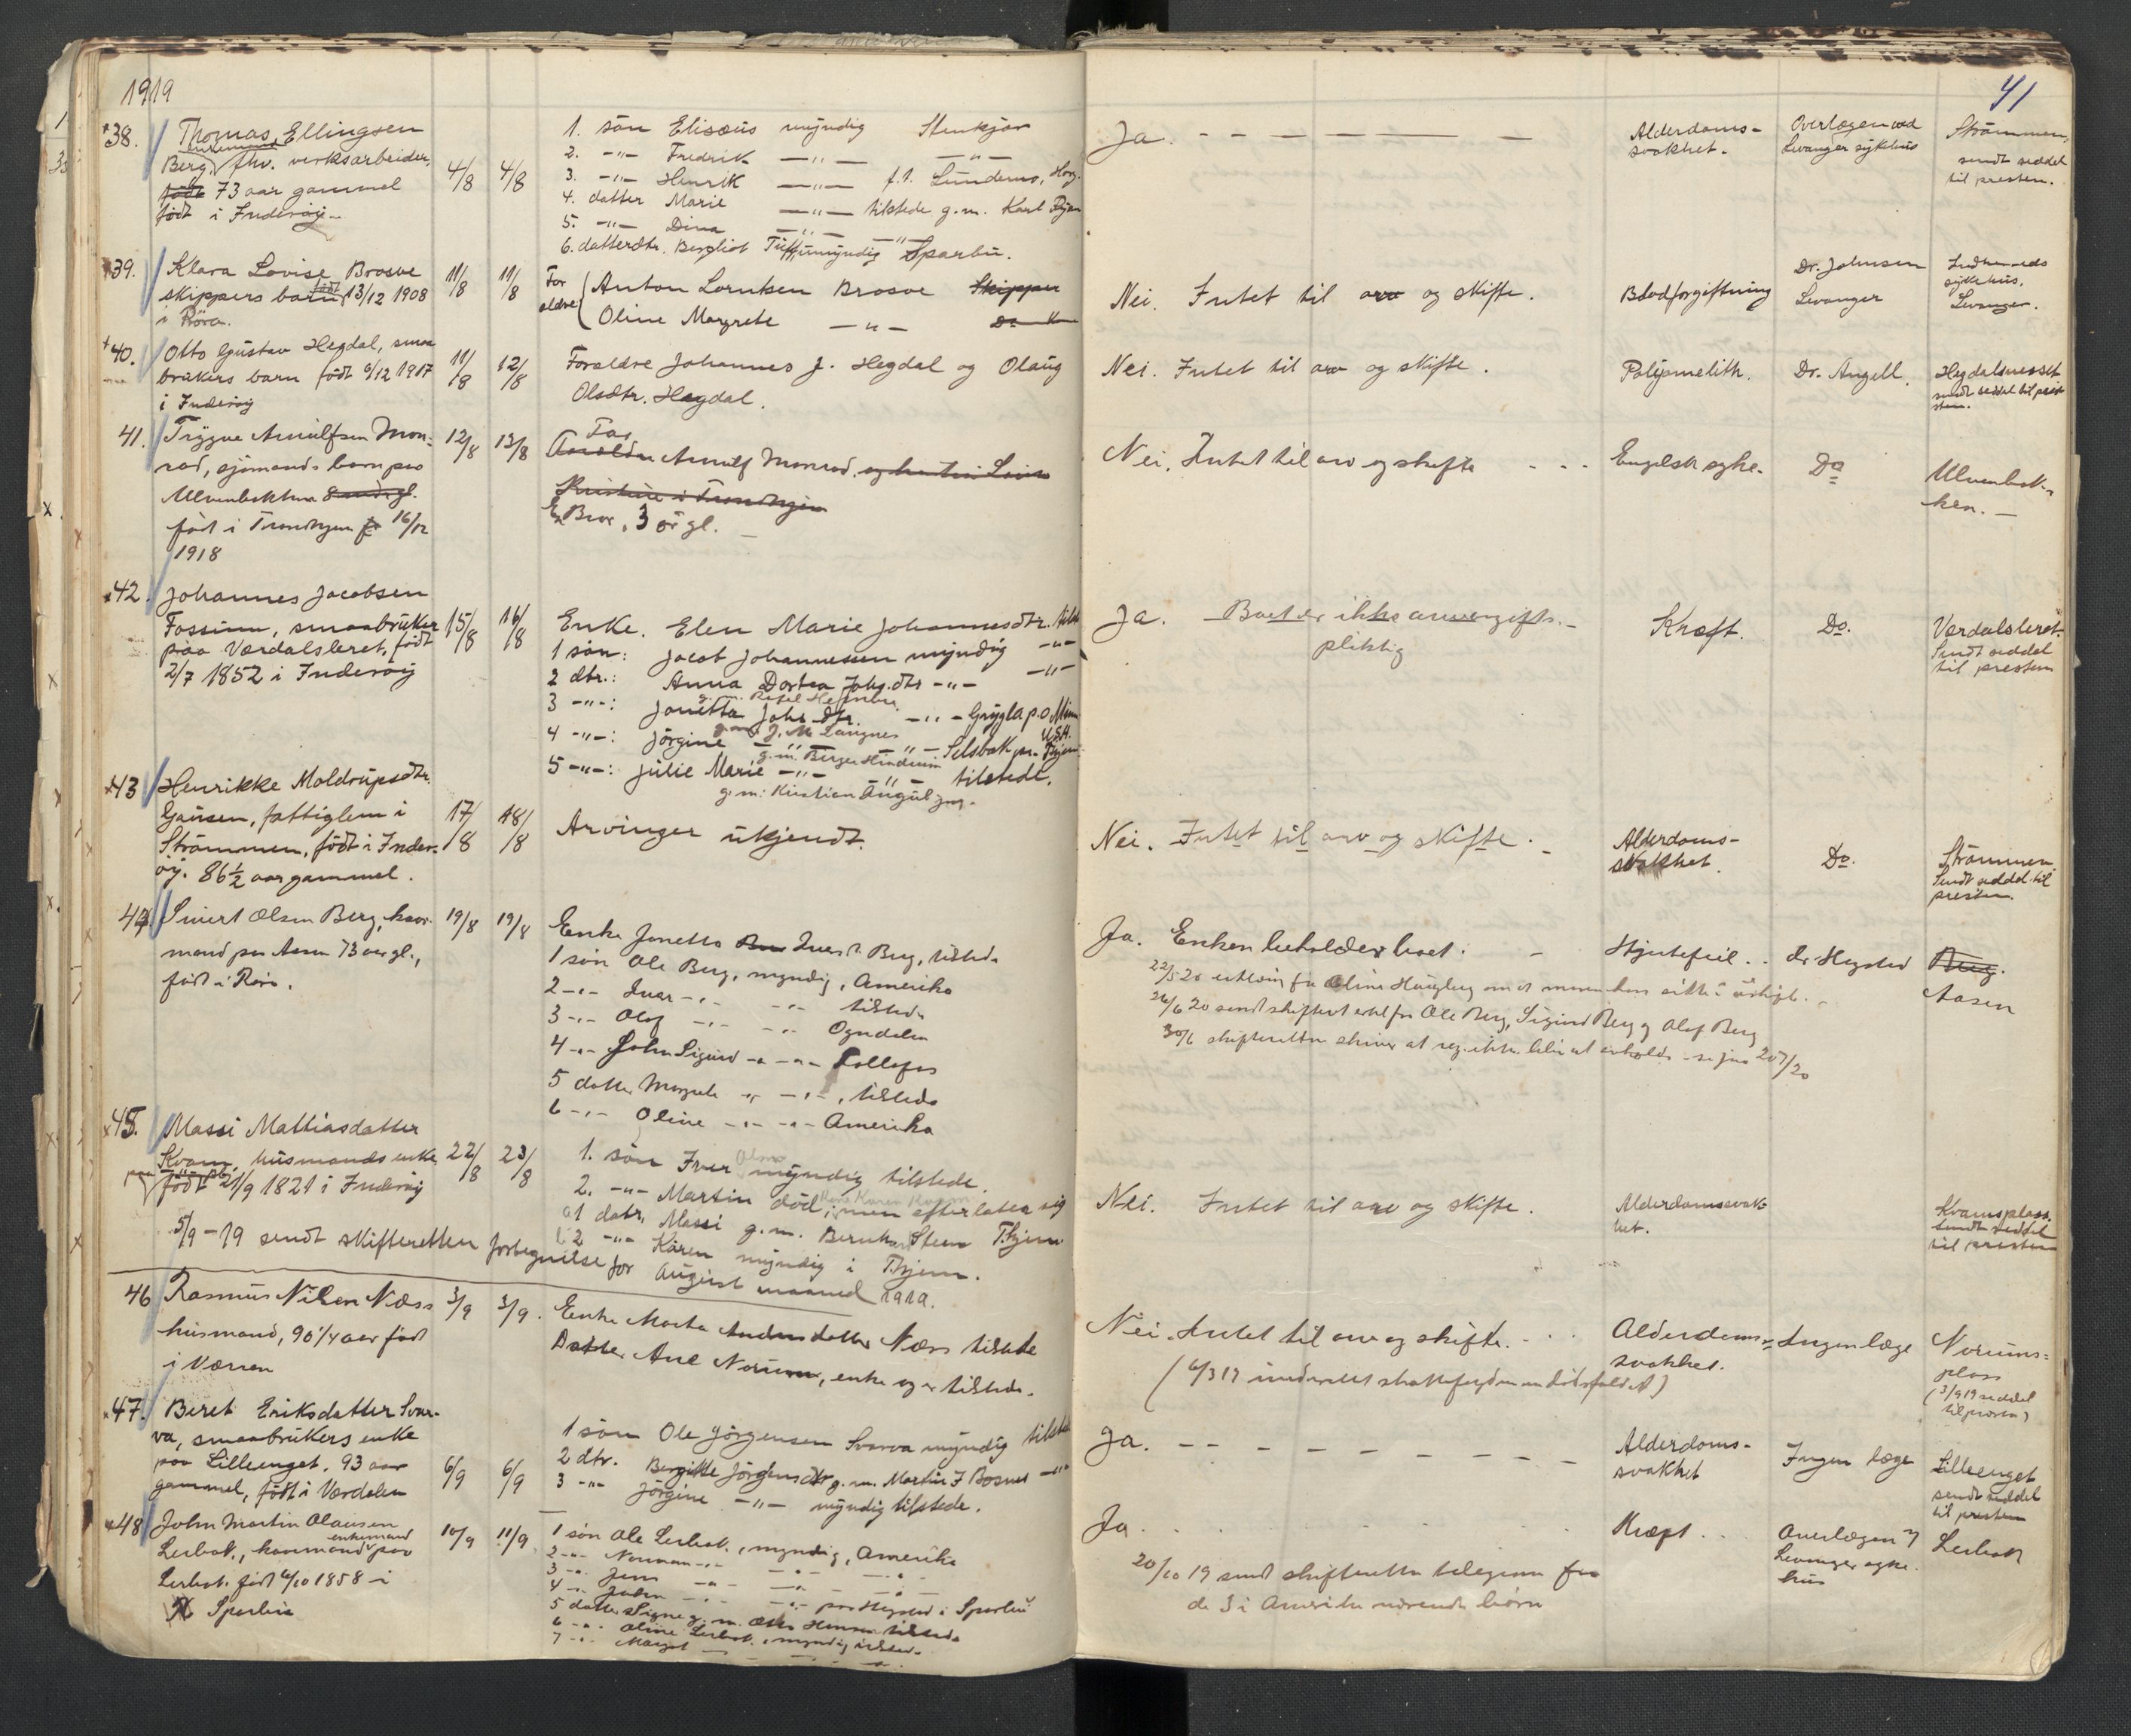 1919
41
38. Thomas Ellingsen
Berg, fhv. verksarbeider,
født 73 aar gammel
født i Inderøy
4/8 4/8
1. søn Elisæus myndig Stenkjær
2. -"- Fredrik -"- -"-
3. -"- Henrik -"- f.t. Sundemo,
4. datter Marie -"- tilstede g.m. Karl
5. -"- Dina -"- -"-
6. datterdtr. Bergliot umyndig Sparbu.
Ja. - - - - - -
Alderdoms-
svakhet.
Overlægen ved
Levanger sykehus
Strømmen,
sendt seddel
til presten.
39. Klara Lovise Brosve
skippers barn født 13/12 1908
i Røra.
11/8 11/8
For
ældre
Anton Lorntsen Brosve Skipper
Oline Margrete -"-
Nei. Intet til arv og skifte.
Blodforgiftning
Dr. Johnsen
Levanger
Indherreds
sykehus,
Levanger.
40. Otto Gustav Hegdal, smaa
brukers barn født 6/12 1917
i Inderøy
11/8 12/8
Forældre Johannes J. Hegdal og Olaug
Olsdtr. Hegdal.
Nei. Intet til arv og skifte.
Poliomelith.
Dr. Angell.
Hegdalsnesset
sendt seddel til pre-
sten.
41. Trygve Arnulfsen Mon-
rad, sjømands barn paa
Ulvenbakken
født i Trondhjem 16/12
1918
12/8 13/8
Far
Forældre Arnulf Monrad og
Kristine i Trondhjem
En Bror, 3 år gl.
Nei. Intet til arv og skifte - - -
Engelsk syke.
Do
Ulvenbak-
ken.
42. Johannes Jacobsen
Fossum, smaabruker
paa Værdalsleret, født
2/7 1852 i Inderøy
15/8 16/8
Enke. Elen Marie Johannesdtr. tilst.
1 søn: Jacob Johannessen myndig -"-
2 dtr.: Anna Dortea Johs.dtr -"- -"-
3 -"-: Jonetta Johs.dtr. -"- Grygla p.o Minn
U.S.A.
4 -"-: Jørgine -"- g.m. J. M. Langnes -"- Selsbak pr. Thjem
g.m. Birger Hindrum
5 -"-: Julie Marie -"- -"- tilstede.
g.m. Kristian
Ja. Boet er ikke arveavgifts-
pliktig
Kræft.
Do.
Værdalsleret.
Sendt seddel
til presten
43. Henrikke Moldrupsdtr.
Gausen, fattiglem i
Strømmen, født i Inder-
øy. 86½ aar gammel.
17/8 18/8
Arvinger ukjendt.
Nei. Intet til arv og skifte.
Alderdoms-
svakhet.
Do.
Strømmen
Sendt seddel til
presten.
44. Sivert Olsen Berg, kaar-
mand paa Aasen 73 aar gl.,
født i Røra.
19/8 19/8
Enke Jonetta Iversd. Berg, tilstede
1 søn Ole Berg, myndig, Amerika
2 -"- Ivar -"- -"- tilstede
3 -"- Olof -"- -"- Ogndalen
4 -"- John Sigurd -"- -"- Follafos
5 datter Margrete -"- -"-, tilstede
6 -"- Oline -"- -"- Amerika
Ja. Enken beholder boet.
Hjertefeil.
dr Hegstad
Berg.
Aasen
26/6 20 sendt skifteret for Ole Berg, Sigurd Berg og Olof Berg
30/6 skifteretten skriver at
45. Massi Mattiasdatter
Kvam, husmands enke
født 21/9 1821 i Inderøy
22/8 23/8
1. søn Iver Olsen myndig tilstede.
2. -"- Martin død, men efterlater sig
a 1 datr. Massi g.m. Bernhard Steen Thjem
b 2 -"- Karen myndig i Thjem.
Nei. Intet til arv og skifte.
Alderdomssvak-
het.
Kvamsplass.
Sendt seddel
til presten
5/9-19 sendt skifteretten fortegnelse for August maaned 1919.
46. Rasmus Nilsen Næss
husmand, 90 1/4 aar født
i Værran
3/9 3/9.
Enke Marta Andersdatter Næss tilstede
Datter Ane Norum, enke og er tilstede.
Nei. Intet til arv og skifte.
Alderdoms-
svakhet.
Ingen læge
Norums-
plass
(3/9 19 seddel
til presten)
47. Beret Eriksdatter Svar-
va, smaabrukers enke
paa Lilleenget. 93 aar
gammel, født i Værdalen
6/9 6/9
1 søn Ole Jørgensen Svarva myndig tilstede
2 dtr. Bergitte Jørgensdtr g.m. Martin J Bosnes -"-
3 -"- Jørgine -"- myndig tilstede.
Ja. - - - - - - - -
Alderdoms-
svakhet
Ingen læge
Lilleenget
sendt seddel
til presten
48. John Martin Olausen
enkemand
Lerbak., kaarmand paa
Lerbak. født 6/10 1858 i
Sparbu
10/9 11/9
1 søn Ole Lerbak., myndig, Amerika
2 -"- Norman -"- -"- -"-
3 -"- Jens -"- -"- -"-
4 -"- -"- -"- paa Hegstad i Sparbu
5 datter Signe g.m. Otto Hansen tilstede
6 -"- Oline Lerbak., myndig tilstede
7 -"- Margot -"- -"-
Ja. . . . . .
20/10 19 sendt skifteretten telegram fra
de 3 i Amerika værende børn
Kræft.
Overlægen v
Levanger syke-
hus
Lerbak